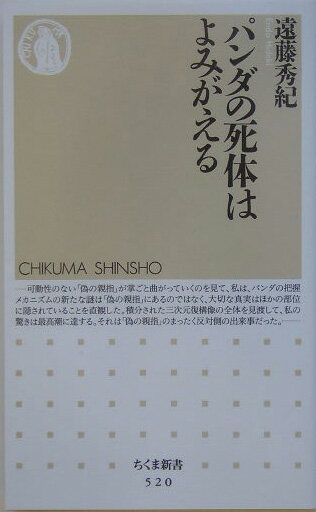 遠藤秀紀
パンダの死体は
よみがえる
CHIKUMA SHINSHO
──可動性のない「偽の親指」が掌ごと曲がっていくのを見て、私は、パンダの把握
メカニズムの新たな謎は「偽の親指」にあるのではなく、大切な真実はほかの部位
に隠されていることを直観した。積分された三次元復構像の全体を見渡して、私の
驚きは最高潮に達する。それは「偽の親指」のまったく反対側の出来事だった。──
ちくま新書
520